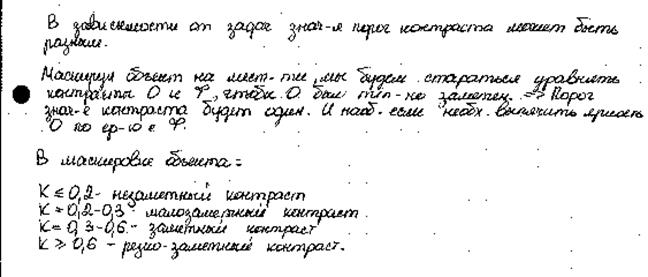 В зависимости от задач знач-я порог контраста может быть
разными.
Маскируя объект на мест-ти, мы будем стараться уравнять
контрасты О и Ф, чтобы О был min-но заметен. => Порог
знач-е контраста будет один. И наоб. если необх. выделить яркость
О по ср-ю с Ф.
В маскировке объекта:
K ≤ 0,2 - незаметный контраст
K = 0,2-0,3 - малозаметный контраст.
K = 0,3-0,6 - заметный контраст
K ≥ 0,6 - резко-заметный контраст.